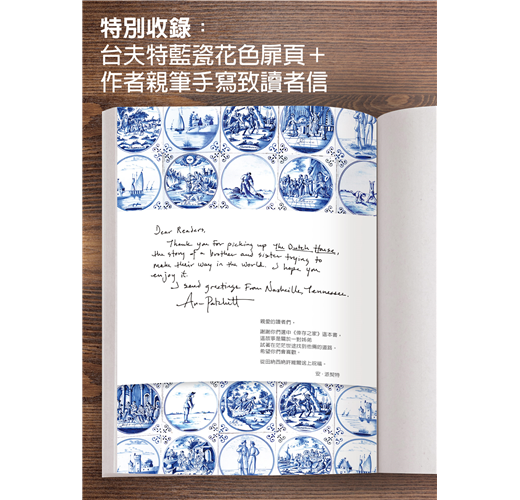 特別收錄：
台夫特藍瓷花色扉頁＋
作者親筆手寫致讀者信
Dear Readers,
Thank you for picking up The Dutch House,
the story of a brother and sister trying to
make their way in the world. I hope you
enjoy it.
I send greetings from Nashville, Tennessee.
Ann Patchett
親愛的讀者們，
謝謝你們選中《倖存之家》這本書。
這故事是關於一對姊弟
試著在茫茫世途找到他倆的道路。
希望你們會喜歡。
從田納西納許維爾送上祝福。
安・派契特